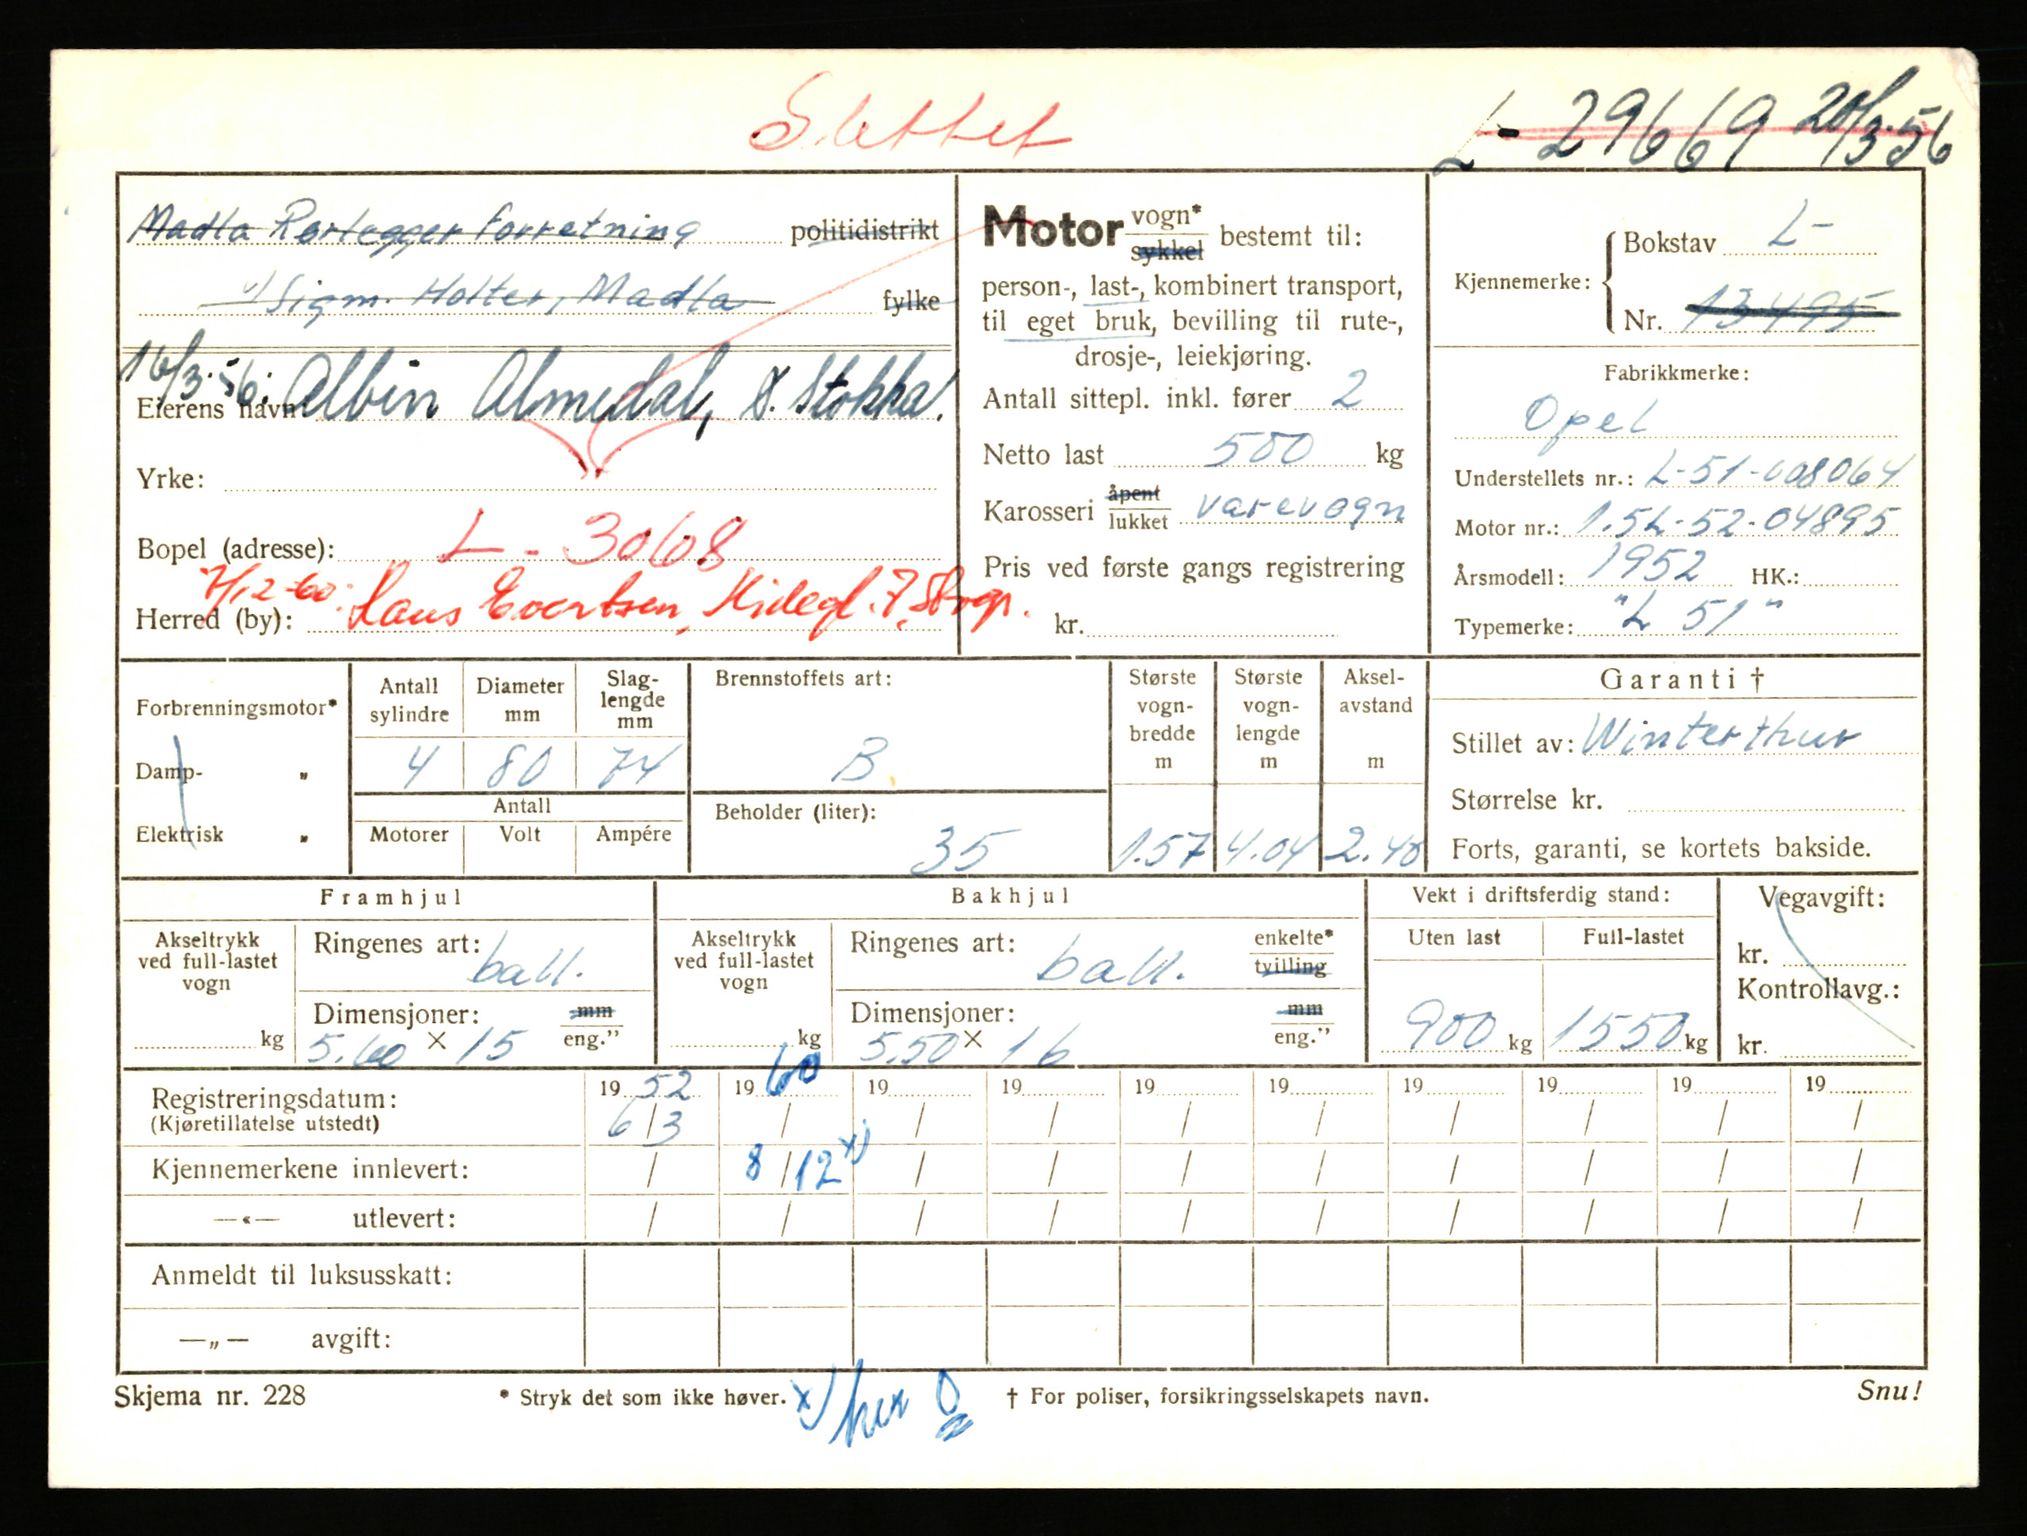 Slettet
L- 29669 20/3.56
Madla Rørlegger forretning politidistrikt
v/ Sigm. Holter, Madla fylke
16/3.56. Albin Almedal, S. Stokka.
Eierens navn:
Yrke:
L - 30608
Bopel (adresse):
7/12-60: Hans Evertsen,
Herred (by):
Motor vogn* sykkel bestemt til:
person-, last-, kombinert transport,
til eget bruk, bevilling til rute-,
drosje-, leiekjøring.
Antall sittepl. inkl. fører 2
Netto last 500 kg
Karosseri åpent lukket varevogn
Pris ved første gangs registrering
kr.
Kjennemerke: Bokstav L-
Nr. 13495
Fabrikkmerke:
Opel
Understellets nr.: L-51-008064
Motor nr.: 1.5L-52-04895
Årsmodell: 1952 HK.:
Typemerke: "L 51"
Forbrenningsmotor*
Damp- „
Elektrisk „
Antall sylindre Diameter mm Slag-lengde mm
4 80 74
Antall
Motorer Volt Ampére
Brennstoffets art:
B
Beholder (liter):
35
Største vogn-bredde m
1.57
Største vogn-lengde m
4.04
Aksel-avstand m
2.40
Garanti †
Stillet av: Winterthur
Størrelse kr.
Forts, garanti, se kortets bakside.
Framhjul
Akseltrykk ved full-lastet vogn
kg
Ringenes art: ball.
Dimensjoner: mm
5.60 × 15 eng.”
Bakhjul
Akseltrykk ved full-lastet vogn
kg
Ringenes art: ball. enkelte* tvilling
Dimensjoner: mm
5.50 × 16 eng.”
Vekt i driftsferdig stand:
Uten last Full-lastet
900 kg 1550 kg
Vegavgift:
kr.
Kontrollavg.:
kr.
Registreringsdatum: 19 52 19 60 19 19 19 19 19 19 19 19
(Kjøretillatelse utstedt) 6/3 / / / / / / / / /
Kjennemerkene innlevert: / 8/12 x) / / / / / / / /
—«— utlevert: / / / / / / / / / /
Anmeldt til luksusskatt:
—„— avgift:
Skjema nr. 228 * Stryk det som ikke høver. x) her † For poliser, forsikringsselskapets navn. Snu!